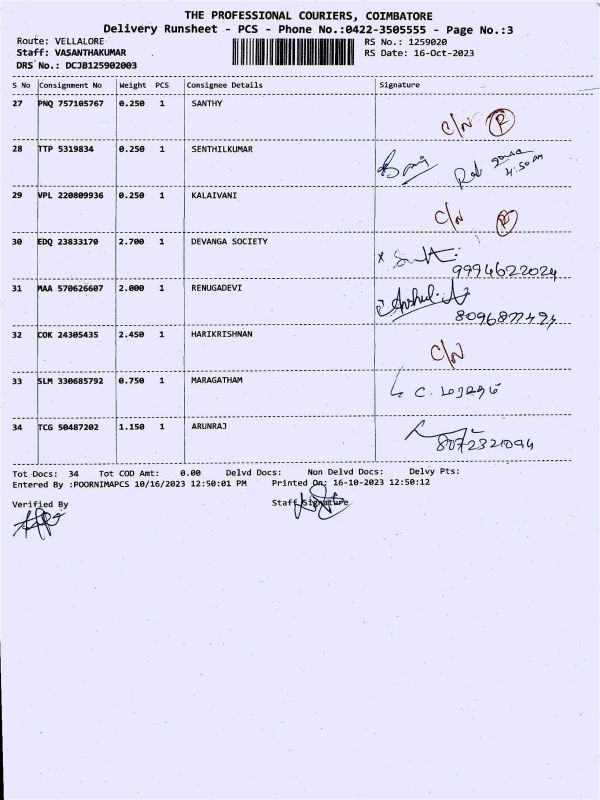 THE PROFESSIONAL COURIERS, COIMBATORE
Delivery Runsheet - PCS - Phone No.:0422-3505555 - Page No.:3
Route: VELLALORE RS No.: 1259020
Staff: VASANTHAKUMAR RS Date: 16-Oct-2023
DRS No.: DCJB125902003
S No Consignment No Weight PCS Consignee Details Signature
27 PNQ 757105767 0.250 1 SANTHY
C/N R
28 TTP 5319834 0.250 1 SENTHILKUMAR
4:50 PM
29 VPL 220809936 0.250 1 KALAIVANI
C/N R
30 EDQ 23833170 2.700 1 DEVANGA SOCIETY
9994622024
31 MAA 570626607 2.000 1 RENUGADEVI
32 COK 24305435 2.450 1 HARIKRISHNAN
C/N
33 SLM 330685792 0.750 1 MARAGATHAM
34 TCG 50487202 1.150 1 ARUNRAJ
8072321094
Tot Docs: 34 Tot COD Amt: 0.00 Delvd Docs: Non Delvd Docs: Delvy Pts:
Entered By :POORNIMAPCS 10/16/2023 12:50:01 PM Printed On: 16-10-2023 12:50:12
Verified By Staff Signature